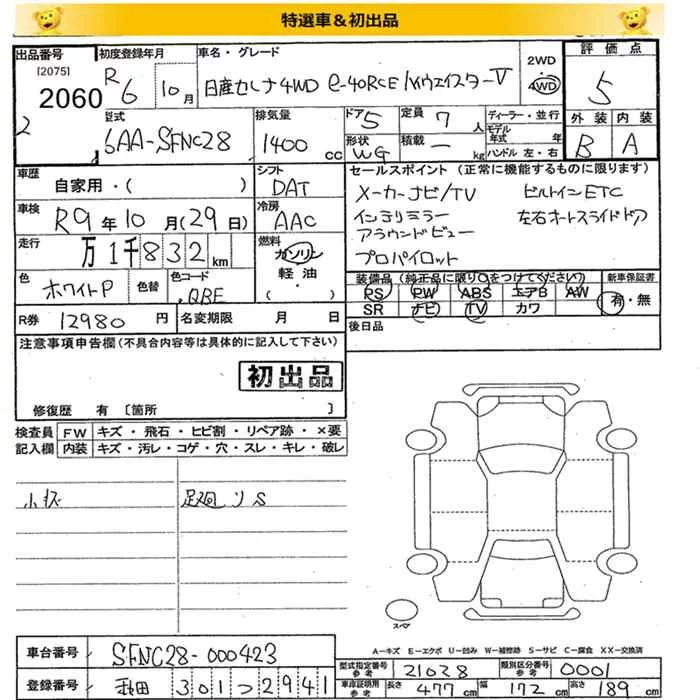 特選車&初出品
出品番号
[2075]
2060
2
初度登録年月
R6 10月
車名・グレード
日産セレナ4WD e-4ORCE ハイウェイスターV
2WD
・
4WD
評価点
5
外装 内装
B A
型式
6AA-SFNC28
排気量
1400 cc
ドア 5
形状 WG
定員 7 人
積載 ー kg
ディーラー・並行
モデル年式 年
ハンドル 左・右
車歴
自家用・( )
シフト
DAT
車検
R9年10月(29日)
冷房
AAC
走行
万1千832km
燃料
ガソリン
軽油
( )
色
ホワイトP
色替
色コード
QBE
セールスポイント (正常に機能するものに限ります)
メーカーナビ/TV ビルトインETC
インテリミラー 左右オートスライドドア
アラウンドビュー
プロパイロット
装備品 (純正品に限り○をつけてください)
PS PW ABS エアB AW
SR ナビ TV カワ
新車保証書
有・無
R券 12980円
名変期限 月 日
後日品
注意事項申告欄 (不具合内容等は具体的に記入して下さい)
初出品
修復歴 有 [箇所 ]
検査員 FW キズ・飛石・ヒビ割・リペア跡・×要
記入欄 内装 キズ・汚レ・コゲ・穴・スレ・キレ・破レ
小キズ
足廻りS
スペア
A-キズ E-エクボ U-凹み W-補修跡 S-サビ C-腐食 XX-交換済
車台番号 SFNC28-000423
登録番号 秋田 301つ2941
型式指定番号 参考 21028
類別区分番号 参考 0001
車庫証明用 参考 長さ 477cm 幅 172cm 高さ 189cm